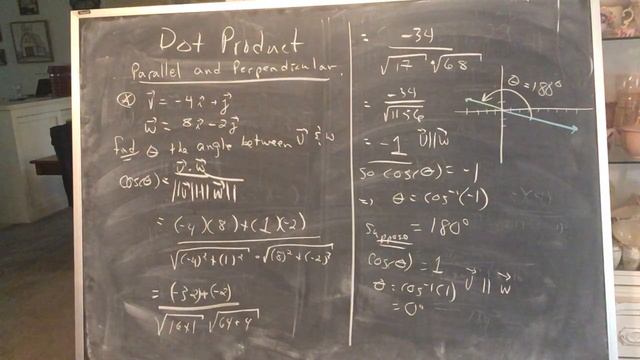 Dot Product
Parallel and Perpendicular.
v⃗ = -4î + ĵ
w⃗ = 8î - 2ĵ
find θ the angle between v⃗ & w
cos(θ) = v⃗ · w⃗ / ||v⃗|| ||w⃗||
= (-4)(8) + (1)(-2) / √(-4)² + (1)² · √(8)² + (-2)²
= (-32) + (-2) / √16+1 √64+4
= -34 / √17 · √68
= -34 / √1156
= -1 v⃗ || w⃗
θ = 180°
so cos(θ) = -1
⇒ θ = cos⁻¹(-1)
= 180°
Suppose
cos(θ) = 1
θ = cos⁻¹(1) v⃗ || w⃗
= 0°